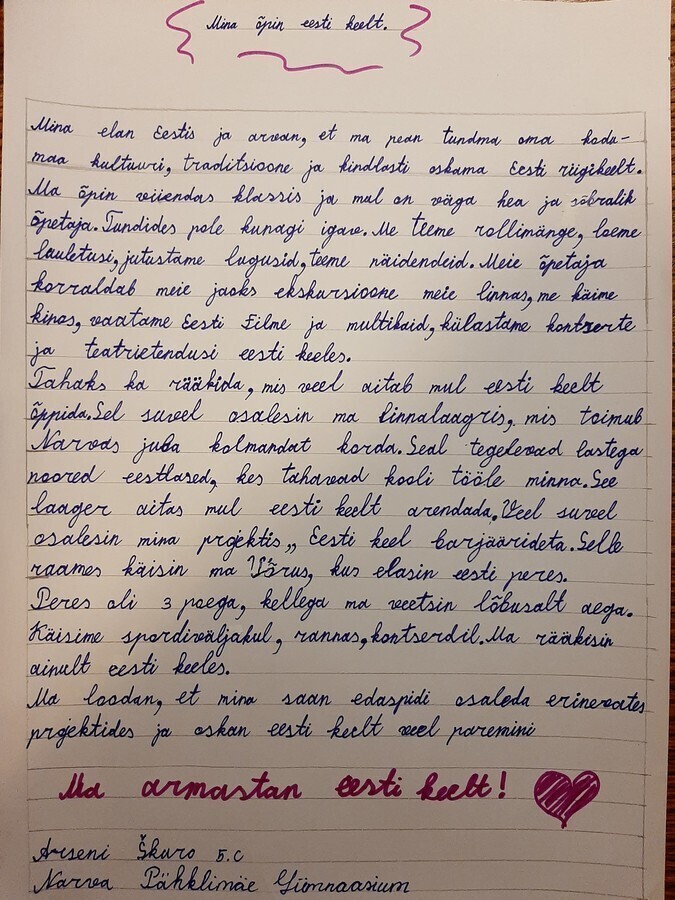 Mina õpin eesti keelt.
Mina elan Eestis ja arvan, et ma pean tundma oma kodu-
maa kultuuri, traditsioone ja kindlasti oskama Eesti riigikeelt.
Ma õpin viiendas klassis ja mul on väga hea ja sõbralik
õpetaja. Tundides pole kunagi igav. Me teeme rollimänge, loeme
lauletusi, jutustame lugusid, teeme näidendeid. Meie õpetaja
korraldab meie jaoks ekskursioone meie linnas, me käime
kinos, vaatame Eesti Filme ja multikaid, külastame kontserte
ja teatrietendusi eesti keeles.
Tahaks ka rääkida, mis veel aitab mul eesti keelt
õppida. Sel suvel osalesin ma linnalaagris, mis toimub
Narvas juba kolmandat korda. Seal tegelevad lastega
noored eestlased, kes tahavad kooli tööle minna. See
laager aitas mul eesti keelt arendada. Veel suvel
osalesin mina projektis „ Eesti keel barjäärideta. Selle
raames käisin ma Võrus, kus elasin eesti peres.
Peres oli 3 poega, kellega ma veetsin lõbusalt aega.
Käisime spordiväljakul, rannas, kontserdil. Ma rääkisin
ainult eesti keeles.
Ma loodan, et mina saan edaspidi osaleda erinevates
projektides ja oskan eesti keelt veel paremini
Ma armastan eesti keelt!
Arseni Škuro 5.C
Narva Pähklimäe Gümnaasium